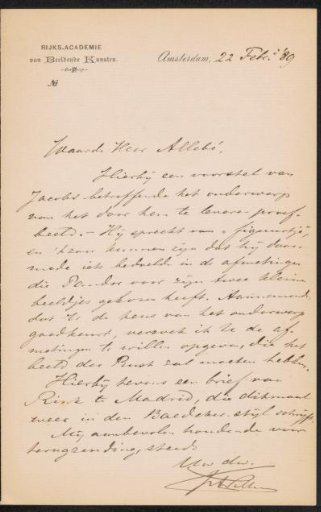 RIJKS-ACADEMIE
van Beeldende Kunsten.
№
Amsterdam, 22 Febr. '89
Waarde Heer Allebé,
Hierbij een voorstel van
Jacobs betreffende het onderwerp
van het door hem te leveren proef-
beeld. – Hij spreekt van "figuurtje"
en 't kan kunnen zijn dat hij daar
mede iets bedoelt in de afmetingen
die voor zijn twee kleine
beeldjes gekozen heeft. Aannemende
dat U de keus van het onderwerp
goedkeurt, verzoek ik U de af-
metingen te willen opgeven, die het
beeld des zal moeten hebben.
Hierbij tevens een brief van
te Madrid, die ditmaal
weer in den Baedeker-stijl schrijft.
Mij aanbevolen houdende voor
terugzending, steeds
Uw dw.